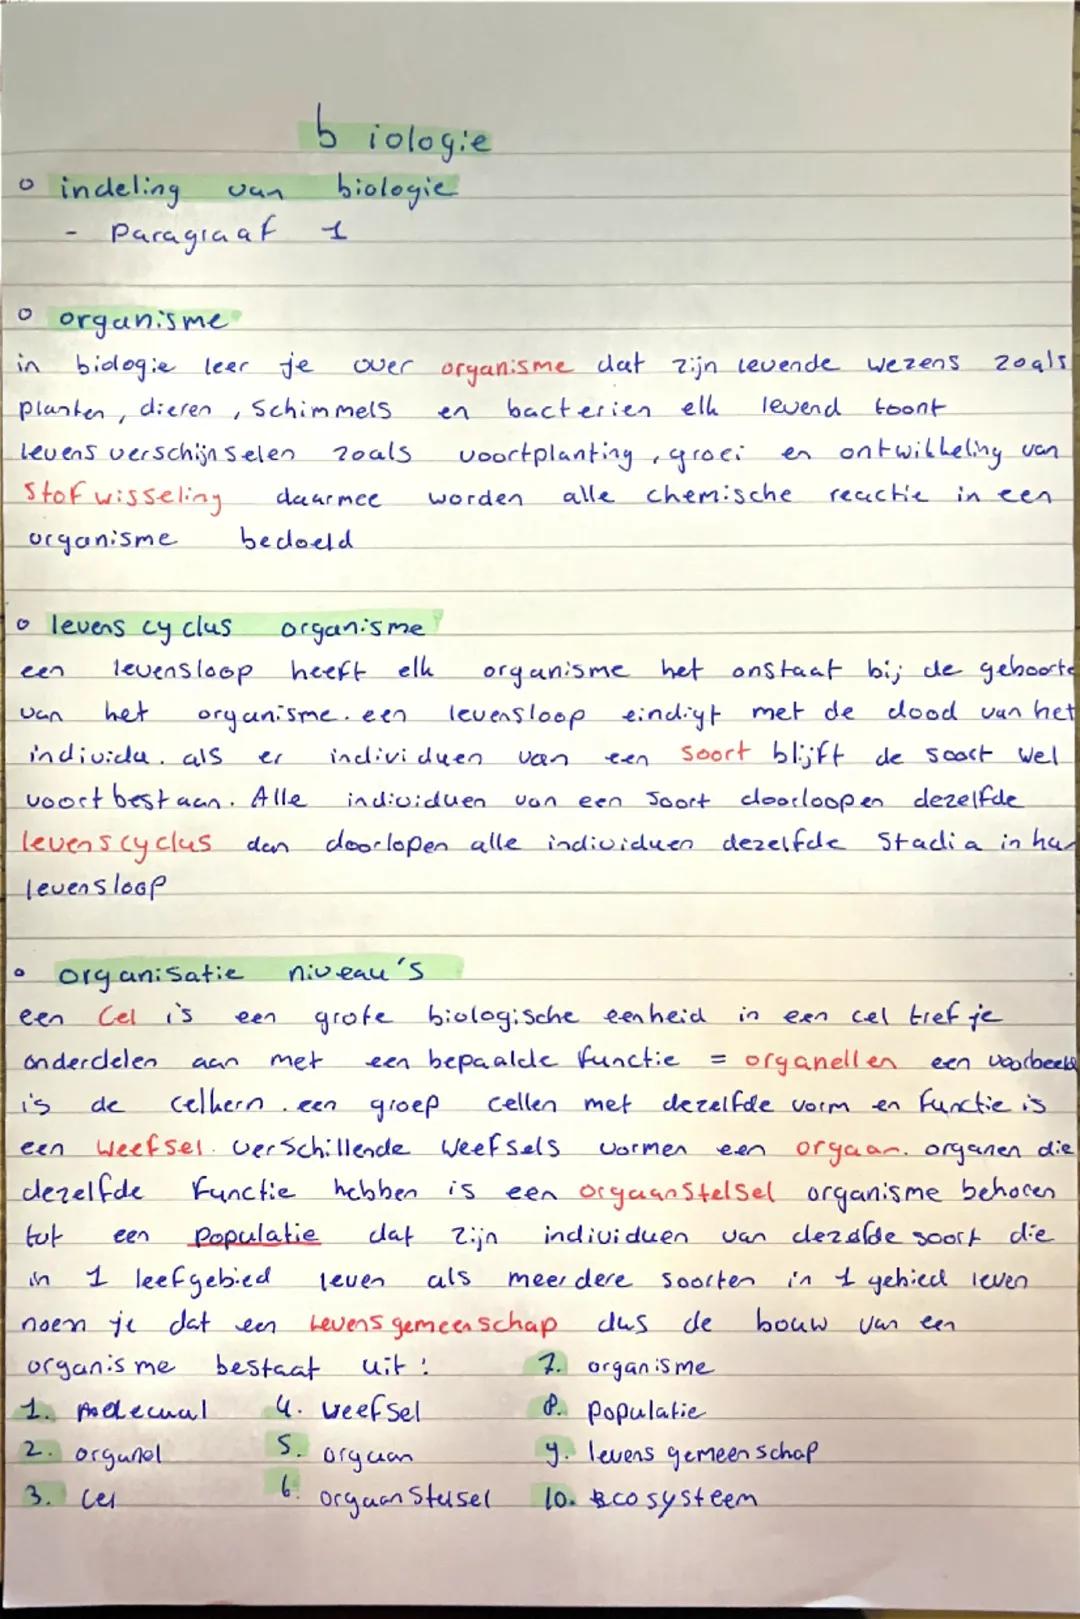 biologie
o indeling van biologie
- Paragraaf 1
o organisme
in biologie leer je over organisme dat zijn levende wezens zoals
planten, dieren, schimmels en bacterien elk levend toont
levens verschijnselen zoals voortplanting, groei en ontwikkeling van
Stofwisseling daarmee worden alle chemische reactie in een
organisme bedoeld
o levens cyclus organisme
een levensloop heeft elk organisme het onstaat bij de geboorte
van het organisme. een levensloop eindigt met de dood van het
individu. als er individuen van een soort blijft de soort wel
voort bestaan. Alle individuen van een soort doorloopen dezelfde
levenscyclus dan doorlopen alle individuen dezelfde Stadia in hun
levensloop
o organisatie niveau's
een Cel is een grote biologische eenheid in een cel tref je
onderdelen aan met een bepaalde functie = organellen een voorbeeld
is de celkern. een groep cellen met dezelfde vorm en functie is
een weefsel. verschillende weefsels vormen een orgaan. organen die
dezelfde functie hebben is een orgaanstelsel organisme behoren
tot een populatie dat zijn individuen van dezelfde soort die
in 1 leefgebied leven als meerdere soorten in 1 gebied leven
noem je dat een Levensgemeenschap dus de bouw van een
organisme bestaat uit: 7. organisme
1. molecuul 4. weefsel 8. populatie
2. organel 5. orgaan 9. levens gemeenschap
3. cel 6. orgaanstelsel 10. Ecosysteem